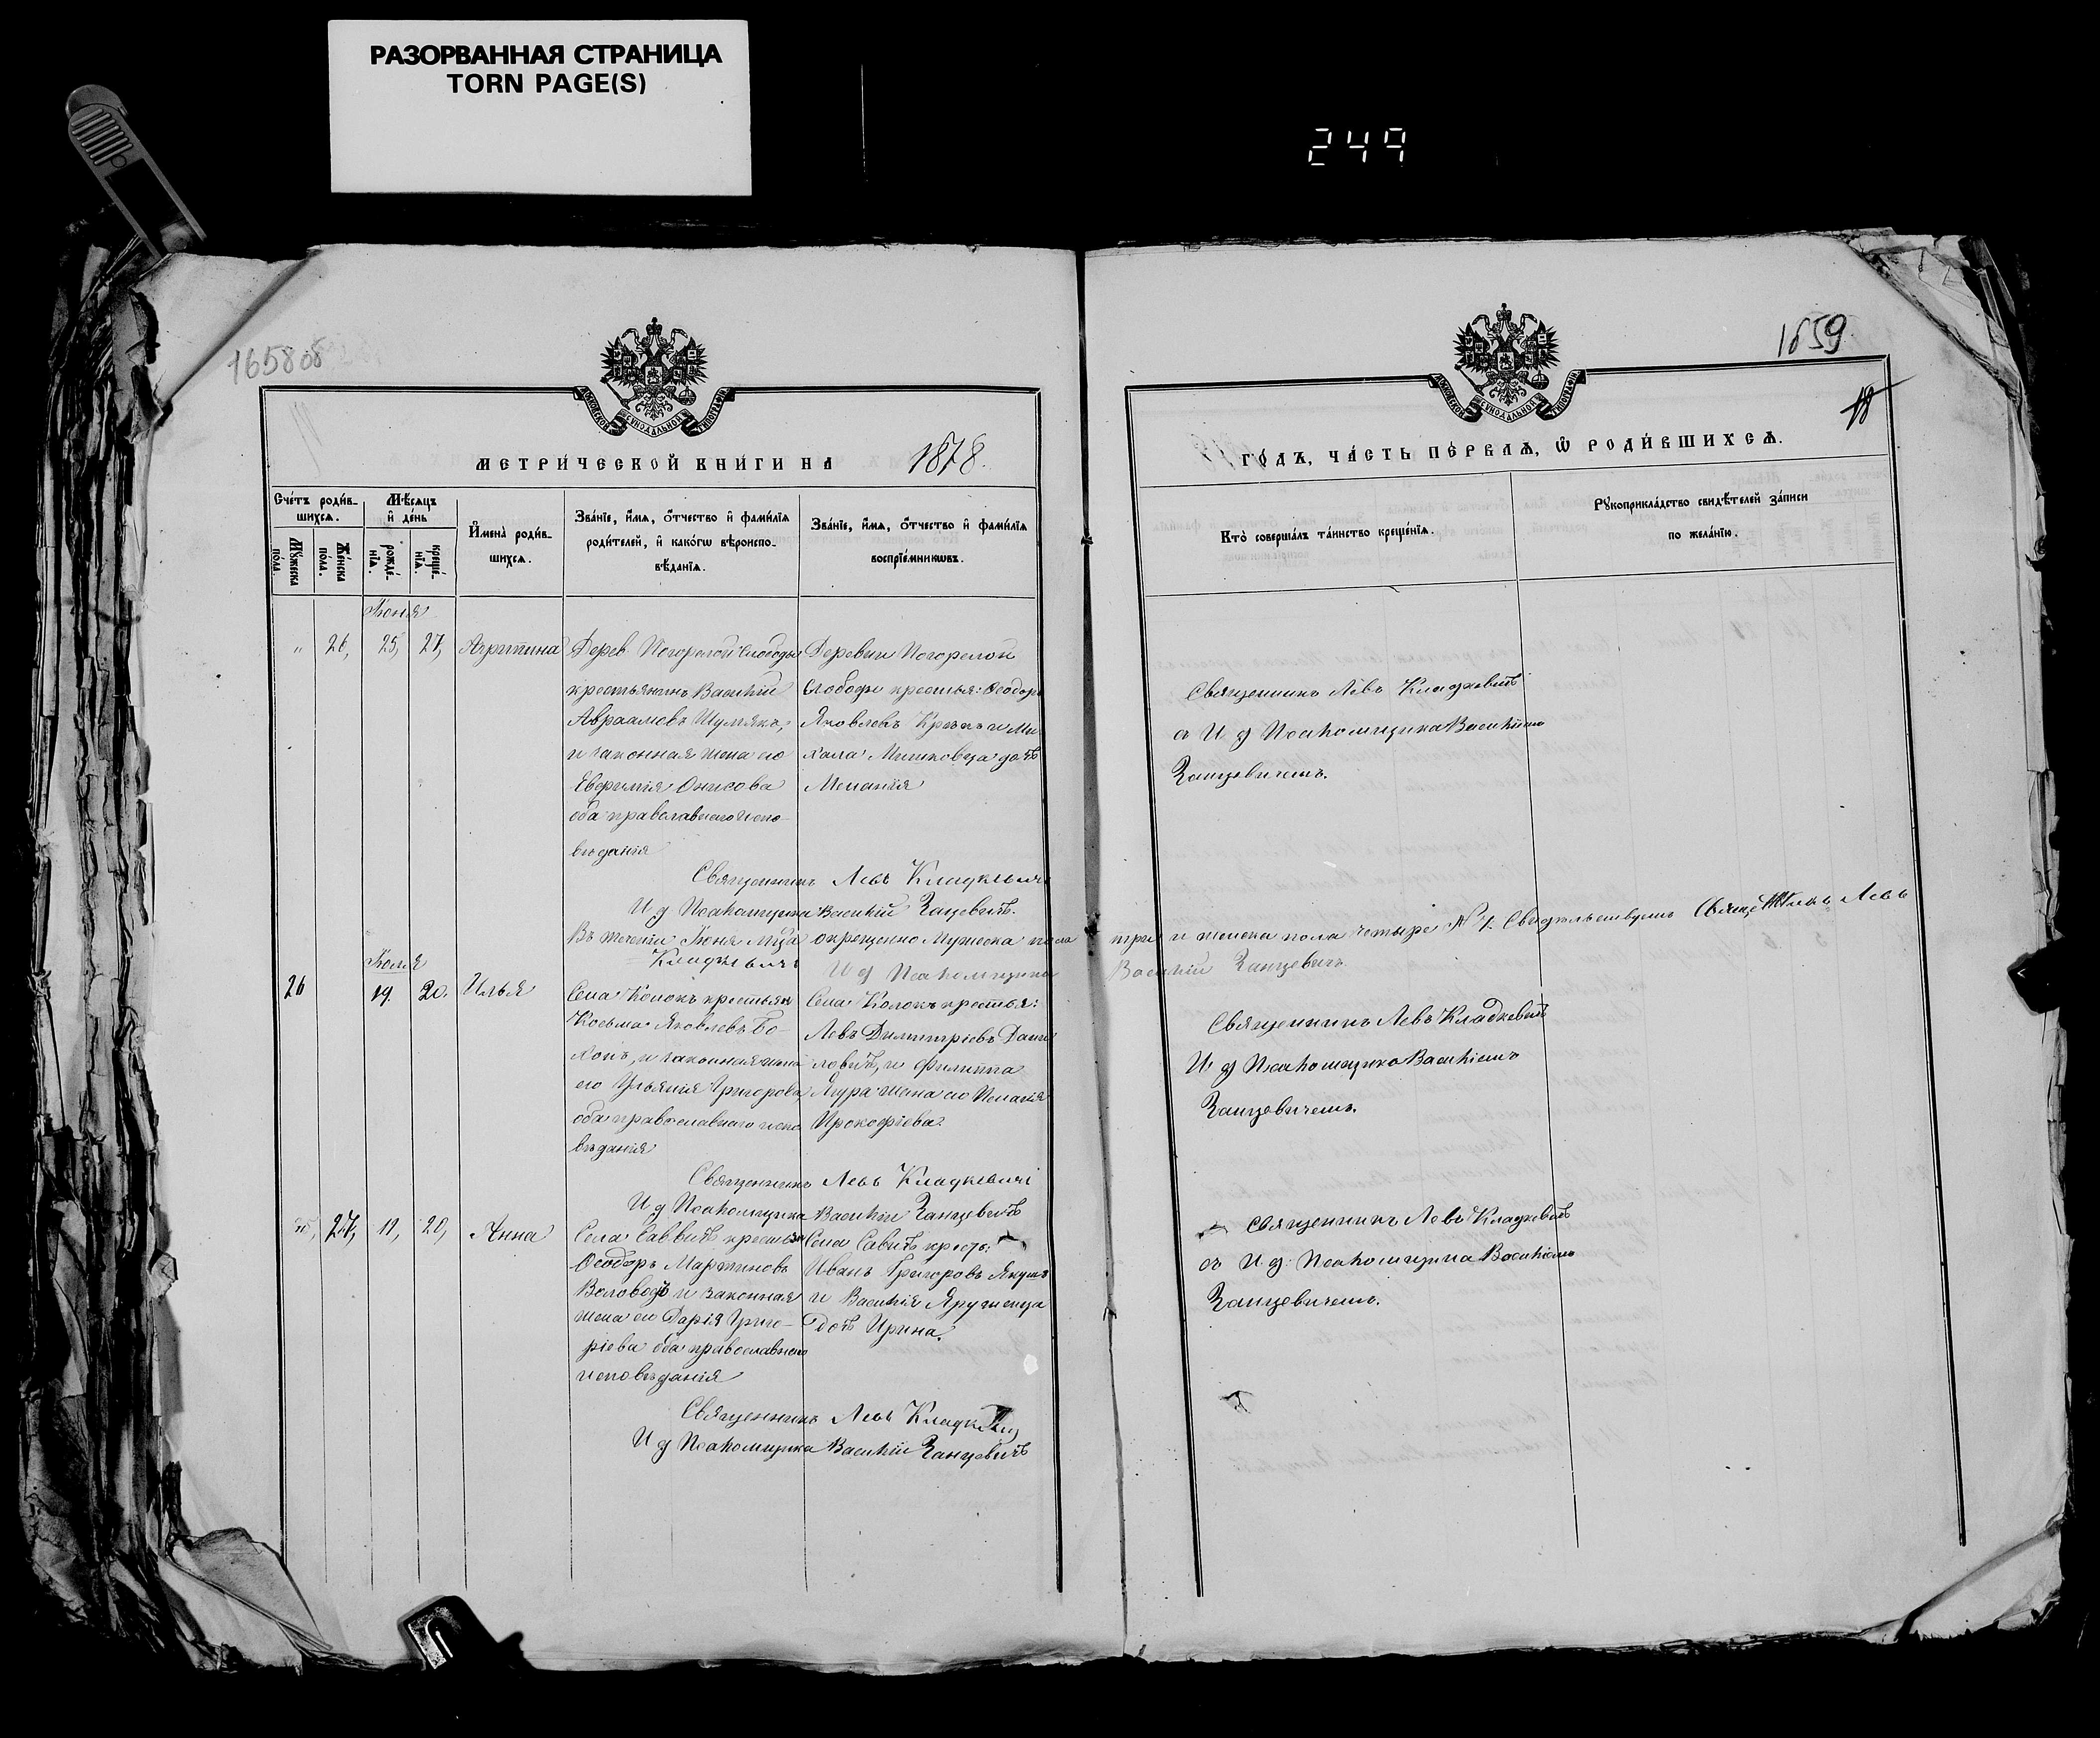 РАЗОРВАННАЯ СТРАНИЦА
TORN PAGE(S)
249
1659
18
МЕТРИ́ЧЕСКОЙ КНИ́ГИ НА 1878.
ГО́ДЪ, ЧА́СТЬ ПЕ́РВАѦ, Ѡ РОДИ́ВШИХСѦ.
Сче́тъ роди́в-
шихсѧ.
Мѣ́сѧцъ
и҆ де́нь
Мꙋ́жеска
по́ла.
Же́нска
по́ла.
рожде́-
нїѧ.
креще́-
нїѧ.
И҆мена̀ роди́в-
шихсѧ.
Зва́нїе, и҆́мѧ, ѻ҆́тчество и҆ фами́лїѧ
роди́телей, и҆ како́гѡ вѣроиспо-
вѣ́данїѧ.
Зва́нїе, и҆́мѧ, ѻ҆́тчество и҆ фами́лїѧ
воспрїе́мникѡвъ.
Кто̀ соверша́лъ та́инство креще́нїѧ.
Рꙋкоприкла́дство свидѣ́телей за́писи
по жела́нїю.
Іюня
" 26, 25, 27, Агрипина
Дерев Погорелой Слободы
крестьянинъ Василій
Авраамовъ Шуляк,
и законная жена его
Евфимія Онисова
оба православнаго испо-
вѣданія
Деревни Погорелой
Слободы крестья: Ѳеодоръ
Яковлевъ и Ми
хаила дочь
Меланія
Священникъ Левъ Кладкевичъ
съ И д Псаломщика Василіемъ
Занцевичемъ.
Священникъ Левъ Кладкевичъ
И д Псаломщика Василій Занцевичъ.
Въ теченіи Іюня мѣца окрещенно Мужеска пола три и женска пола четыре № 4. Свидѣтельствуемъ Священникъ Левъ
Кладкевичъ И д Псаломщика Василій Занцевичъ.
Іюля
26 19. 20. Илья
Села Колокъ крестьян
Косьма Яковлевъ Бо-
и законная жена
его Ульянія Григорова
оба православнаго испо
вѣданія
Села Колокъ крестья:
Левъ Димитріевъ Дани
ловичъ, и Филиппа
Ягура жена его Пелагія
Прокофіева.
Священникъ Левъ Кладкевичъ
И д Псаломщика Василіемъ
Занцевичемъ.
Священникъ Левъ Кладкевичъ
И д Псаломщика Василій Занцевичъ
27, 11, 20, Анна
Села Саввичъ крестья
Ѳеодоръ Мартиновъ
и законная
жена его Дарія Григо-
ріева оба православнаго
исповѣданія
Села Савичъ крест:
Иванъ Григоровъ
и Василія
дочь Ирина.
Священникъ Левъ Кладкевичъ
съ И. д. Псаломщика Василіемъ
Занцевичемъ.
Священникъ Левъ Кладкевичъ
И д Псаломщика Василій Занцевичъ